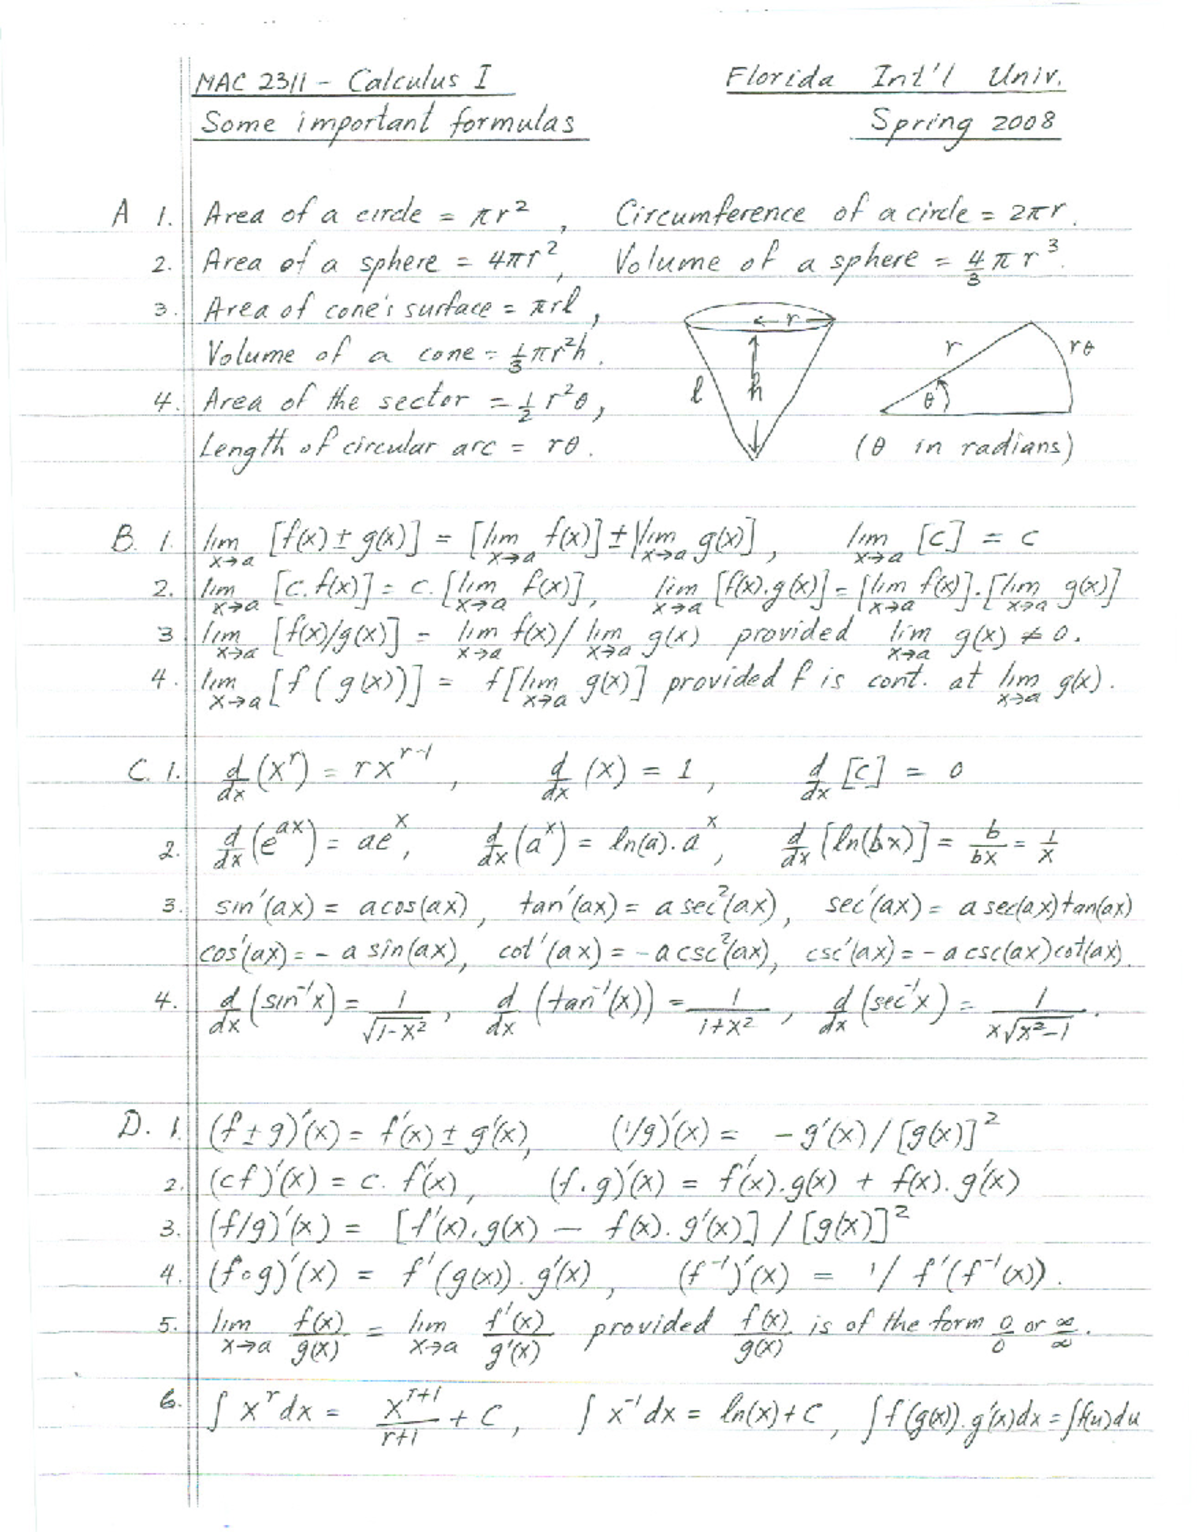 MAC 2311 - Calculus I Florida Int'l Univ.
Some important formulas Spring 2008
A 1. Area of a circle = πr², Circumference of a circle = 2πr.
2. Area of a sphere = 4πr², Volume of a sphere = 4/3 πr³.
3. Area of cone's surface = πrl,
Volume of a cone = 1/3 πr²h.
4. Area of the sector = 1/2 r²θ,
Length of circular arc = rθ.
r
l
h
r
rθ
θ
(θ in radians)
B. 1. lim x→a [f(x) ± g(x)] = [lim x→a f(x)] ± [lim x→a g(x)], lim x→a [c] = c
2. lim x→a [c. f(x)] = c. [lim x→a f(x)], lim x→a [f(x).g(x)] = [lim x→a f(x)].[lim x→a g(x)]
3 lim x→a [f(x)/g(x)] = lim x→a f(x) / lim x→a g(x) provided lim x→a g(x) ≠ 0.
4. lim x→a [f(g(x))] = f[lim x→a g(x)] provided f is cont. at lim x→a g(x).
C. 1. d/dx (x^r) = rx^(r-1), d/dx (x) = 1, d/dx [c] = 0
2. d/dx (e^(ax)) = ae^x, d/dx (a^x) = ln(a). a^x, d/dx [ln(bx)] = b/bx = 1/x
3. sin'(ax) = a cos(ax), tan'(ax) = a sec²(ax), sec'(ax) = a sec(ax)tan(ax)
cos'(ax) = - a sin(ax), cot'(ax) = - a csc²(ax), csc'(ax) = - a csc(ax)cot(ax).
4. d/dx (sin⁻¹x) = 1/√(1-x²), d/dx (tan⁻¹(x)) = 1/(1+x²), d/dx (sec⁻¹x) = 1/(x√(x²-1)).
D. 1. (f ± g)'(x) = f'(x) ± g'(x), (1/g)'(x) = - g'(x) / [g(x)]²
2. (cf)'(x) = c. f'(x), (f.g)'(x) = f'(x).g(x) + f(x).g'(x)
3. (f/g)'(x) = [f'(x).g(x) − f(x).g'(x)] / [g(x)]²
4. (f∘g)'(x) = f'(g(x)).g'(x), (f⁻¹)'(x) = 1/ f'(f⁻¹(x)).
5. lim x→a f(x)/g(x) = lim x→a f'(x)/g'(x) provided f(x)/g(x) is of the form 0/0 or ∞/∞.
6. ∫ x^r dx = x^(r+1)/(r+1) + C, ∫ x⁻¹ dx = ln(x) + C, ∫ f(g(x)).g'(x)dx = ∫f(u)du